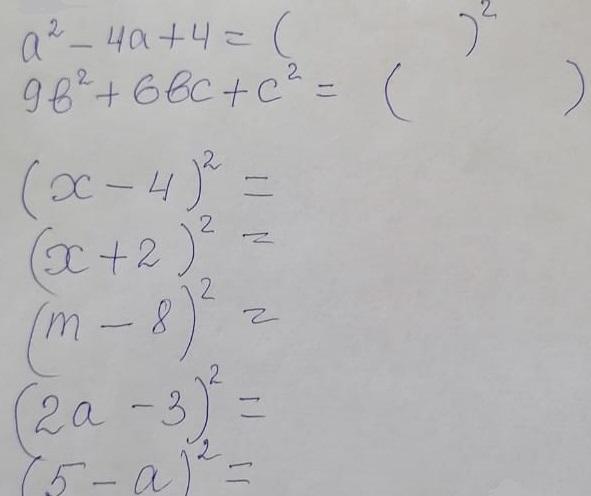 a² - 4a + 4 = (        )²
9b² + 6bc + c² = (        )
(x - 4)² =
(x + 2)² =
(m - 8)² =
(2a - 3)² =
(5 - a)² =